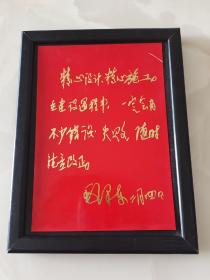 精心设计，精心施工。
在建设过程中，一定会有
不少错误、失败，随时
注意改正。
毛泽东 一月四日